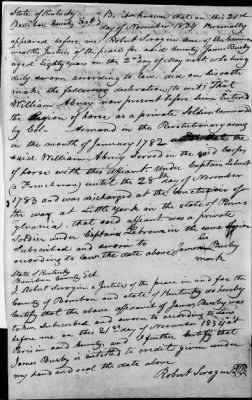 State of Kentucky
Bourbon County Sct Be it known that on this 21st
day of November 1834 Personally
appeared before me Robert Scrogin one of the Common
wealths Justices of the peace for said County James Burby
aged Eighty years on the 2nd day of May next who being
duly sworn according to law did on his oath
make the following declaration to wit, That
William Abney now present before him Entered
the Legion of horse as a private Soldier Commanded
by Col. Armand in the Revolutionary army
in the month of January 1782 that the
said William Abney Served in the said Corps
of horse with this affiant under Captain
(a Frenchman) until the 28th day of November
1783 and was discharged at the Conclusion of
the war at Little York in the State of Penn
sylvania, that said affiant was a private
Soldier under Captain in the same
Subscribed and sworn to his
according to law the date above James Burby
mark
State of Kentucky
Bourbon County Sct
I Robert Scrogin a Justice of the peace in and for the
County of Bourbon and State of Kentucky do hereby
Certify that the above affidavit of James Burby was
taken Subscribed and sworn to according to law
before me on this 21st day of November 1834 at
Paris in said County, and I further Certify that
James Burby is entitled to credit given under
my hand and seal the date above
Robert Scrogin